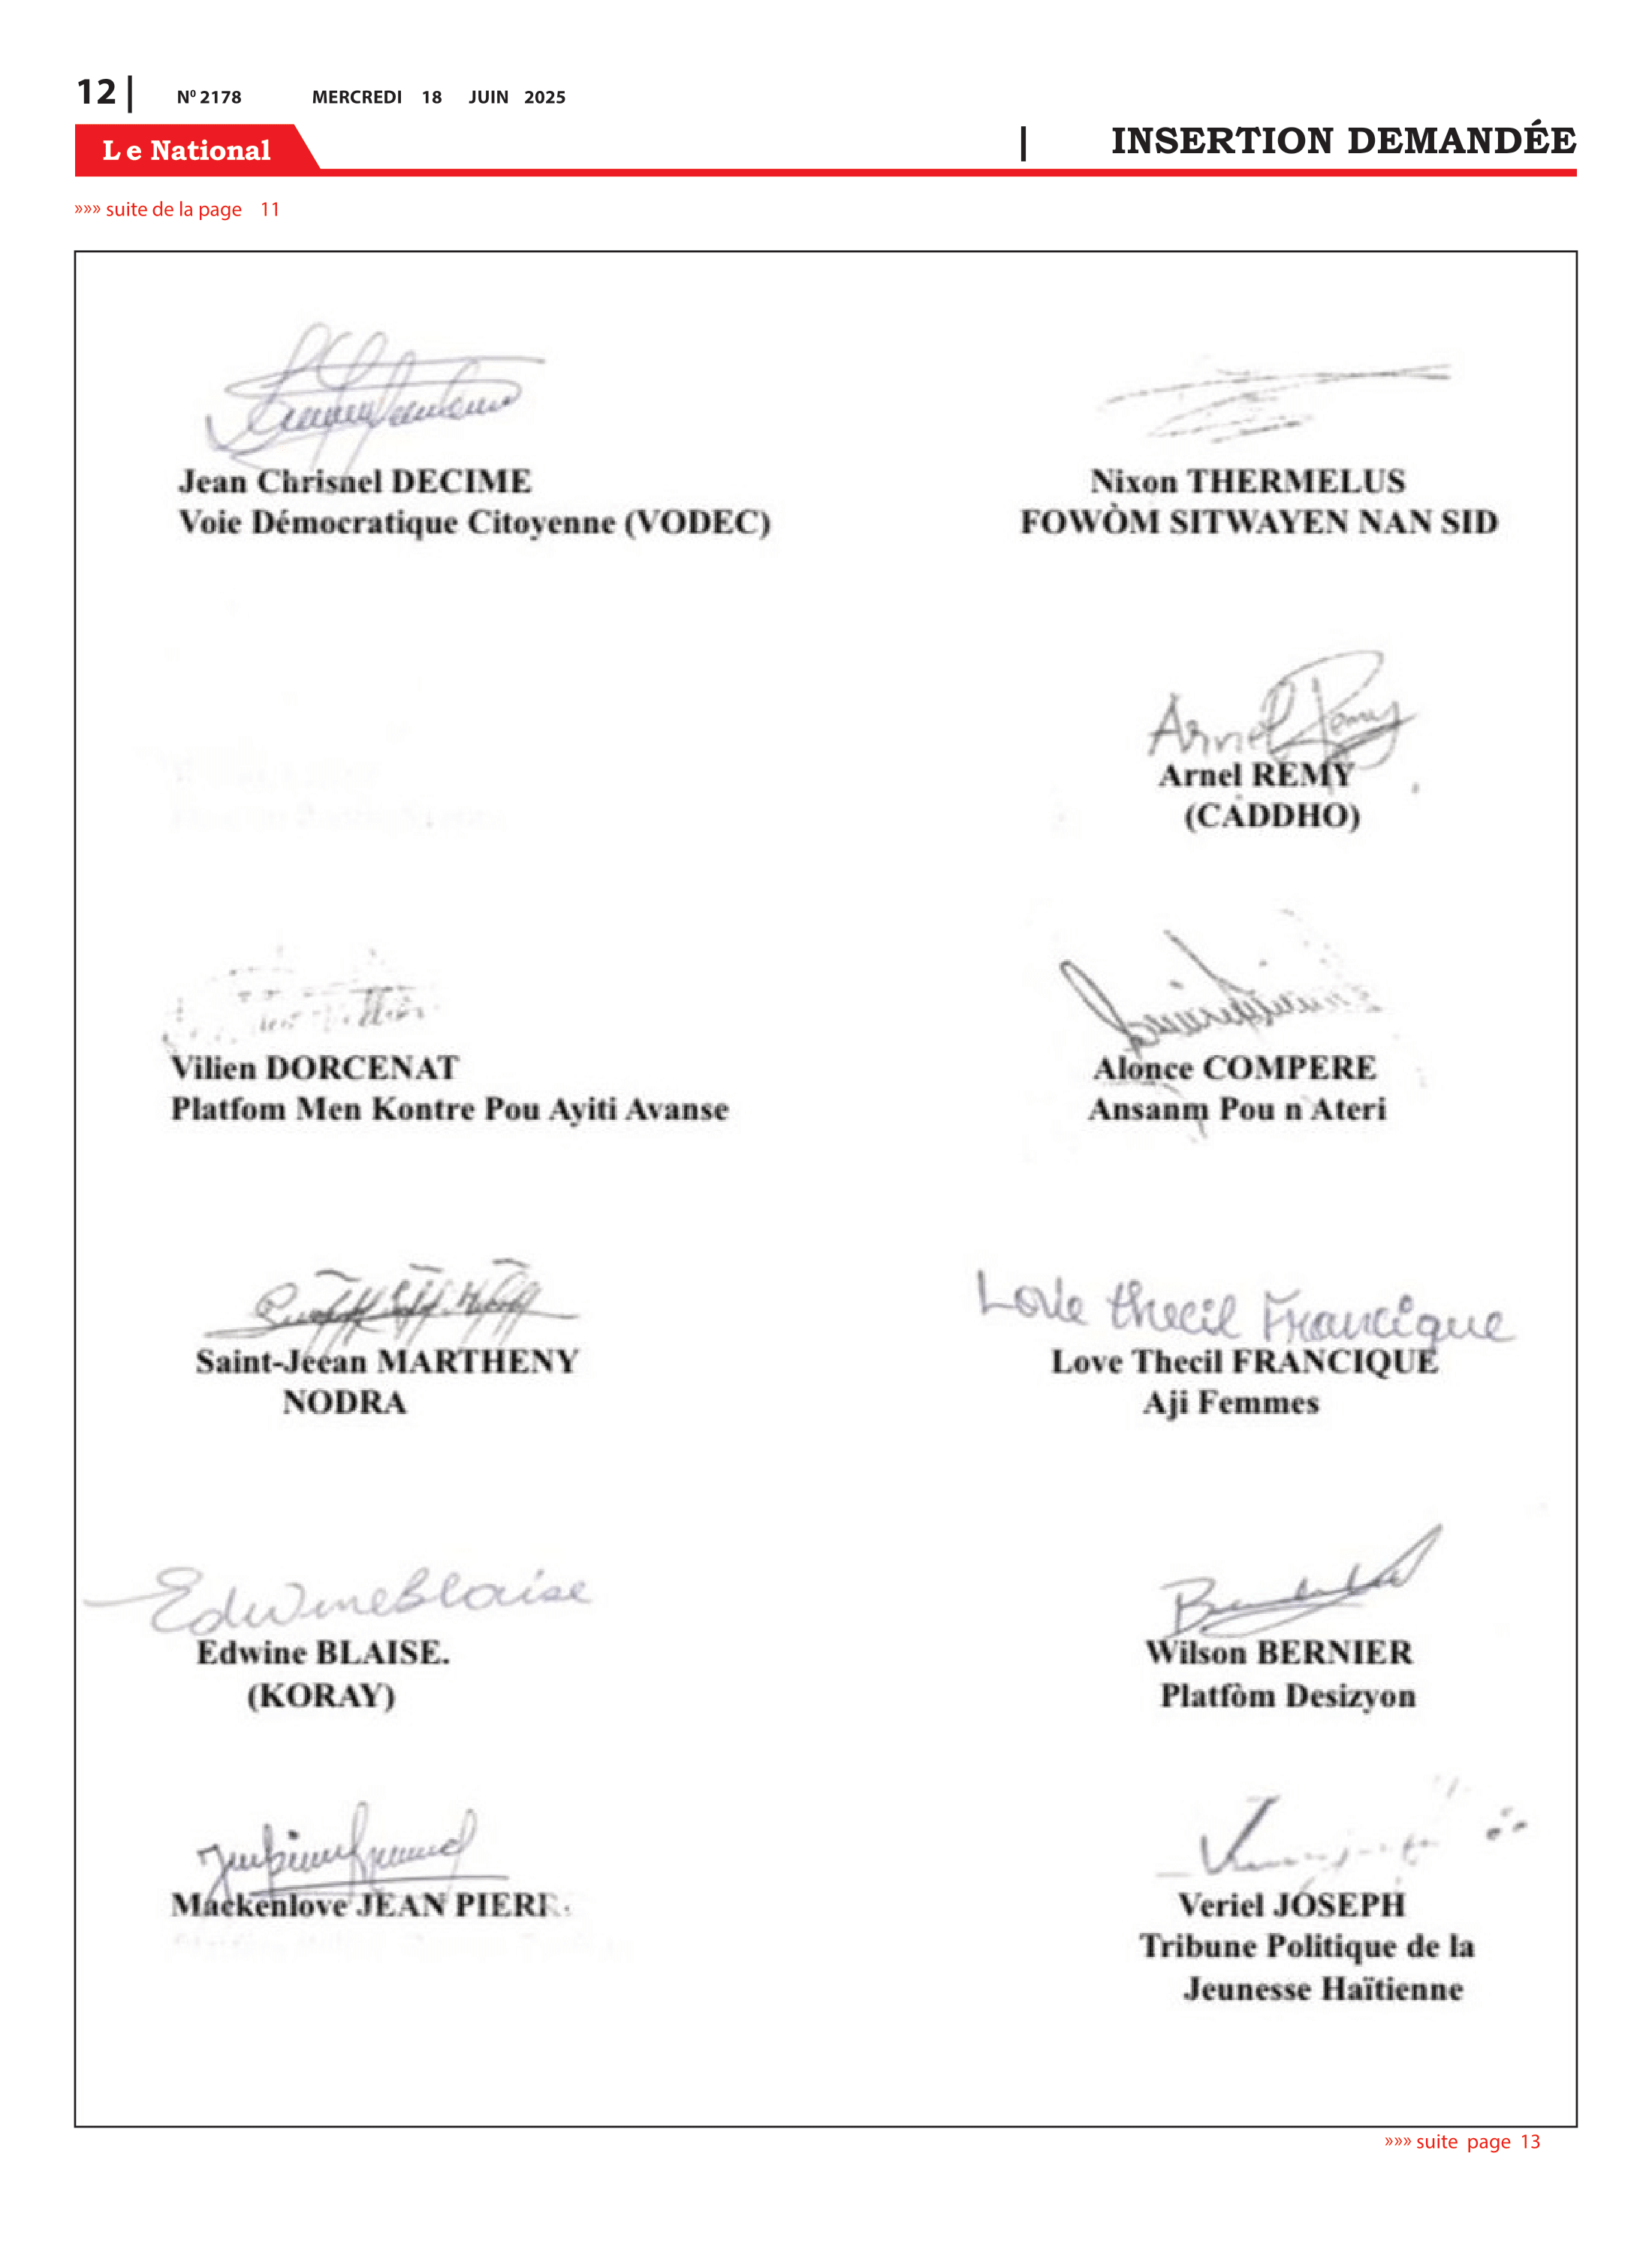 12 |
Nº 2178 MERCREDI 18 JUIN 2025
Le National
| INSERTION DEMANDÉE
»»» suite de la page 11
Jean Chrisnel DECIME
Voie Démocratique Citoyenne (VODEC)
Nixon THERMELUS
FOWÒM SITWAYEN NAN SID
Arnel Remy
Arnel REMY
(CADDHO)
Vilien DORCENAT
Platfom Men Kontre Pou Ayiti Avanse
Alonce COMPERE
Ansanm Pou n Ateri
Saint-Jeean MARTHENY
NODRA
Love Thecil Francique
Love Thecil FRANCIQUE
Aji Femmes
Edwine Blaise
Edwine BLAISE.
(KORAY)
Wilson BERNIER
Platfòm Desizyon
Mackenlove JEAN PIERR
Veriel JOSEPH
Tribune Politique de la
Jeunesse Haïtienne
»»» suite page 13